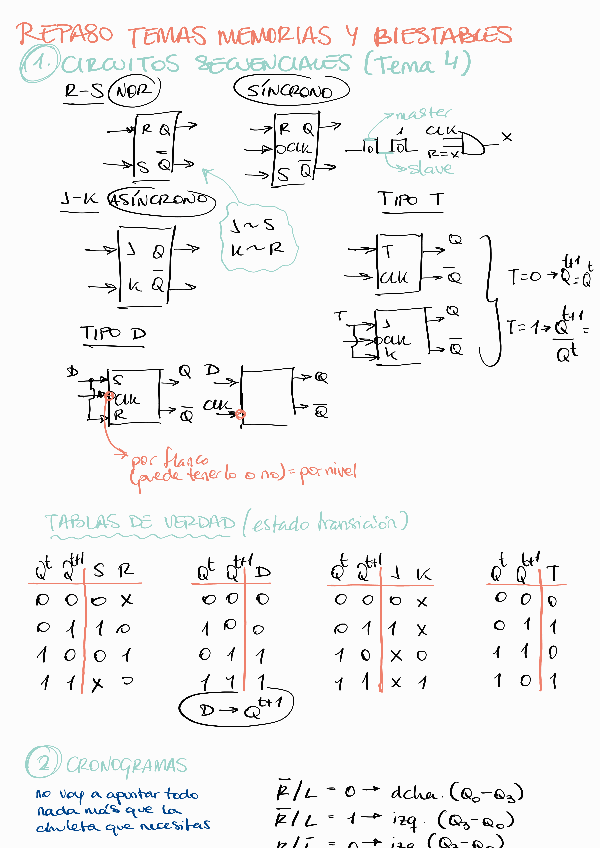 REPASO TEMAS MEMORIAS Y BIESTABLES
1. CIRCUITOS SECUENCIALES (Tema 4)
R-S NOR
SÍNCRONO
R Q
S Q̅
R Q
CLK
S Q̅
master
slave
CLK
R=X
X
J-K ASÍNCRONO
J Q
K Q̅
J~S
K~R
TIPO T
T
CLK
Q
Q̅
T
J
CLK
K
Q
Q̅
T=0→Q^t+1=Q^t
T=1→Q^t+1=
Q̅^t
TIPO D
D
S
CLK
R
Q
Q̅
D
CLK
Q
Q̅
por flanco
(puede tenerlo o no)=por nivel
TABLAS DE VERDAD (estado transición)
Q^t Q^t+1 S R
0 0 0 X
0 1 1 0
1 0 0 1
1 1 X 0
Q^t Q^t+1 D
0 0 0
1 0 0
0 1 1
1 1 1
D → Q^t+1
Q^t Q^t+1 J K
0 0 0 X
0 1 1 X
1 0 X 0
1 1 X 1
Q^t Q^t+1 T
0 0 0
0 1 1
1 1 0
1 0 1
2 CRONOGRAMAS
no voy a apuntar todo
nada más que la
chuleta que necesitas
R̅/L = 0 → dcha. (Q₀-Q₃)
R̅/L = 1 → izq. (Q₃-Q₀)